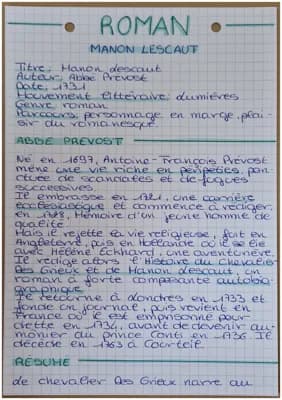 ROMAN
MANON LESCAUT
Titre: Manon Lescaut
Auteur: Abbé Prévost
Date: 1731
Mouvement littéraire: Lumières
Genre: roman
Parcours: personnage en marge, plai-
sir du romanesque
ABBÉ PRÉVOST
Né en 1697, Antoine-François Prévost
mène une vie riche en péripéties, ponc-
tuée de scandales et de fugues
successives.
Il embrasse en 1721, une carrière
ecclésiastique et commence à rédiger,
en 1728, Mémoire d'un jeune homme de
qualité
Mais il rejette la vie religieuse, fuit en
Angleterre, puis en Hollande où il se lie
avec Hélène Eckhard, une aventurière.
Il rédige alors l'Histoire du Chevalier
Des Grieux et de Manon Lescaut, un
roman à forte composante autobio-
graphique.
Il retourne à Londres en 1733 et
fonde un journal, puis revient en
France où il est emprisonné pour
dette en 1734, avant de devenir au-
mônier du prince Conti en 1736. Il
décède en 1763 à Courteil.
RÉSUMÉ
de chevalier Des Grieux narre au